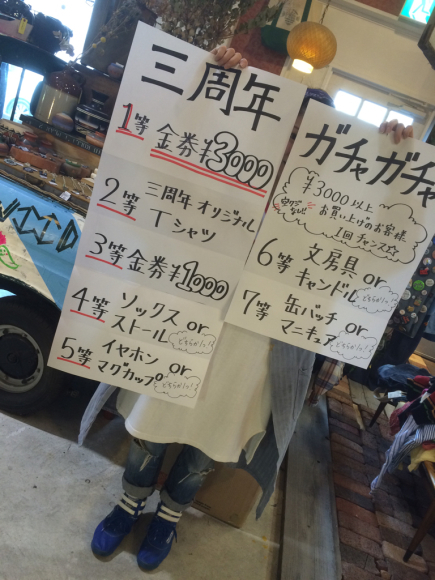 三周年
1等 金券¥3000
2等 三周年オリジナル
Tシャツ
3等 金券¥1000
4等 ソックス or
ストール どちらか1つ!
5等 イヤホン or
マグカップ どちらか1つ!
ガチャガチャ
¥3000以上
お買い上げのお客様
1回チャンス☆
6等 文房具 or
キャンドル どちらか1つ!
7等 缶バッチ or
マニキュア どちらか1つ!